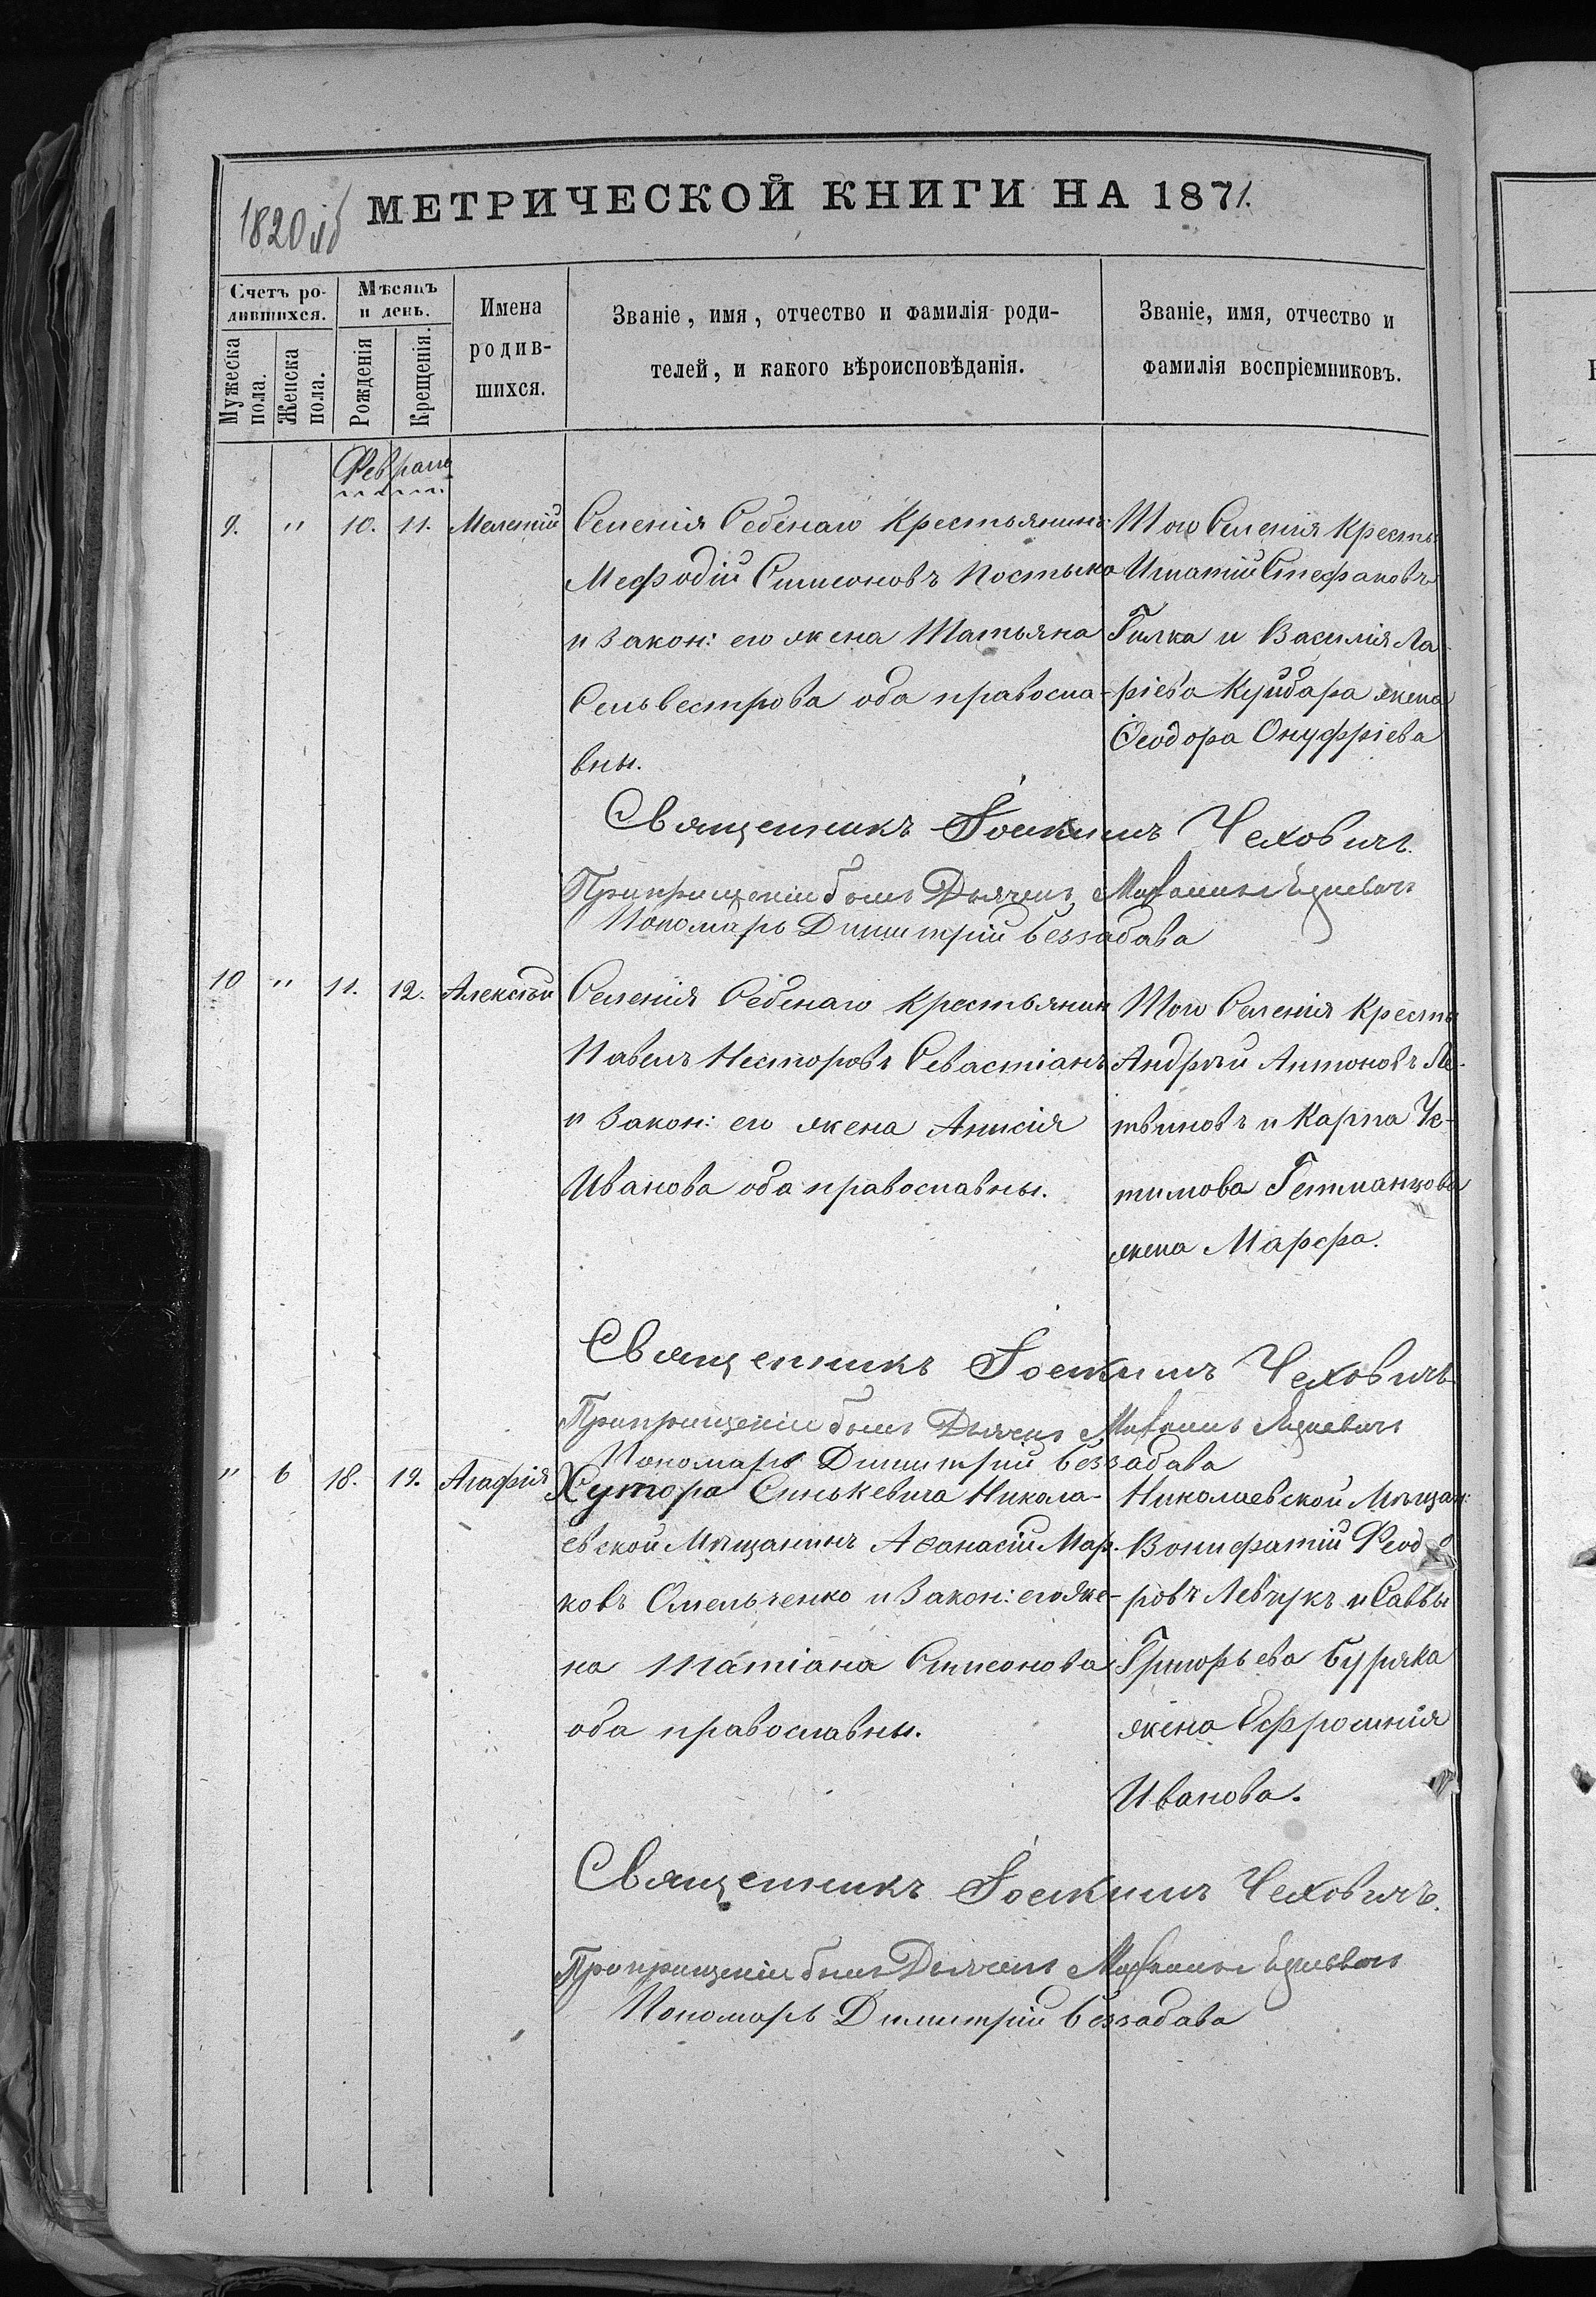 1820 об
МЕТРИЧЕСКОЙ КНИГИ НА 1871.
Счетъ ро-
дившихся.
Мѣсяцъ
и день.
Мужеска
пола.
Женска
пола.
Рожденія
Крещенія.
Имена
родив-
шихся.
Званіе, имя, отчество и фамилія роди-
телей, и какого вѣроисповѣданія.
Званіе, имя, отчество и
фамилія воспріемниковъ.
Февраль
9. " 10. 11. Мелетій
Селенія Себенаго Крестьянинъ
Мефодій Симеоновъ Постыка
и Закон: его жена Татьяна
Сельвестрова оба правосла-
вны.
Того Селенія Кресть
Игнатій Стефановъ
Гилка и Василія Ла-
ріева Куйдара жена
Ѳеодора Онуфріева
Священникъ Іоакимъ Чеховичъ.
При крещеніи былъ Дьячекъ Михаилъ
Пономарь Димитрій Беззабава
10 " 11. 12. Алексѣй
Селенія Себенаго Крестьянин
Павелъ Несторовъ Севастіанъ
и Закон: его жена Анисія
Иванова оба православны.
Того Селенія Кресть
Андрѣй Антоновъ Ле-
твиновъ и Карпа Ус-
тимова Гетманцова
жена Марфа.
Священникъ Іоакимъ Чеховичъ
При крещеніи былъ Дьячекъ Михаилъ
Пономарь Димитрій Беззабава
" 6 18. 19. Агафія
Хутора Синькевича Никола-
евской Мѣщанинъ Аѳанасій Мар-
ковъ Омельченко и Закон: его же-
на Татіана Симеонова
оба православны.
Николаевской Мѣщан:
Вонифатій Феодо
ровъ Левчукъ и Саввы
Григорьева Буряка
жена Ефросинія
Иванова.
Священникъ Іоакимъ Чеховичъ.
При крещеніи былъ Дьячекъ Михаилъ
Пономарь Димитрій Беззабава